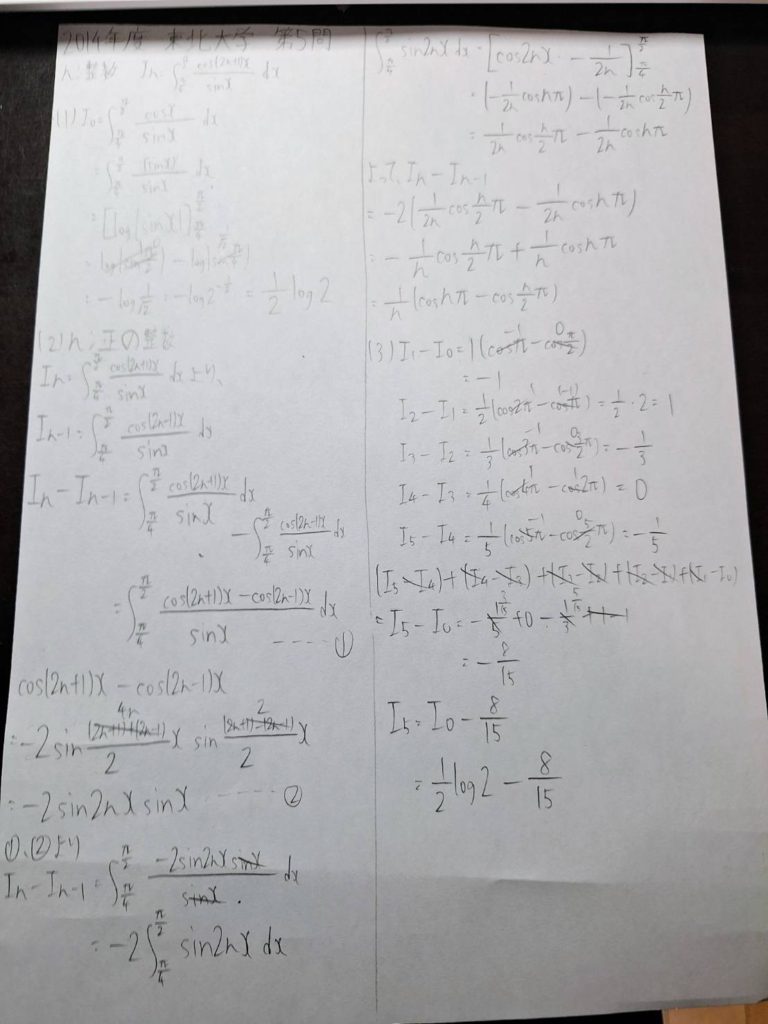 2014年度 東北大学 第5問
n:整数 In=∫_{π/4}^{π/2} cos(2n+1)x/sinx dx
(1) I0=∫_{π/4}^{π/2} cosx/sinx dx
=∫_{π/4}^{π/2} (sinx)'/sinx dx
=[log|sinx|]_{π/4}^{π/2}
=log|sin π/2|-log|sin π/4|
=-log 1/√2=-log2^{-1/2}=1/2 log2
(2) n:正の整数
In=∫_{π/4}^{π/2} cos(2n+1)x/sinx dxより、
In-1=∫_{π/4}^{π/2} cos(2n-1)x/sinx dx
In-In-1=∫_{π/4}^{π/2} cos(2n+1)x/sinx dx
-∫_{π/4}^{π/2} cos(2n-1)x/sinx dx
=∫_{π/4}^{π/2} cos(2n+1)x-cos(2n-1)x/sinx dx ----①
cos(2n+1)x-cos(2n-1)x
=-2sin (2n+1)+(2n-1)/2 x sin (2n+1)-(2n-1)/2 x
4n 2
=-2sin2nx sinx ----②
①、②より
In-In-1=∫_{π/4}^{π/2} -2sin2nx sinx/sinx dx
=-2∫_{π/4}^{π/2} sin2nx dx
∫_{π/4}^{π/2} sin2nx dx=[cos2nx・-1/2n]_{π/4}^{π/2}
=(-1/2n cosnπ)-(-1/2n cos n/2 π)
=1/2n cos n/2 π-1/2n cosnπ
よって、In-In-1
=-2(1/2n cos n/2 π-1/2n cosnπ)
=-1/n cos n/2 π+1/n cosnπ
=1/n(cosnπ-cos n/2 π)
(3) I1-I0=1(cosπ-cos π/2)
-1 0
=-1
I2-I1=1/2(cos2π-cosπ)=1/2・2=1
1 (-1)
I3-I2=1/3(cos3π-cos 3/2 π)=-1/3
-1 0
I4-I3=1/4(cos4π-cos2π)=0
1 1
I5-I4=1/5(cos5π-cos 5/2 π)=-1/5
-1 0
(I5-I4)+(I4-I3)+(I3-I2)+(I2-I1)+(I1-I0)
=I5-I0=-1/5+0-1/3+1-1
3/15 5/15
=-8/15
I5=I0-8/15
=1/2 log2-8/15